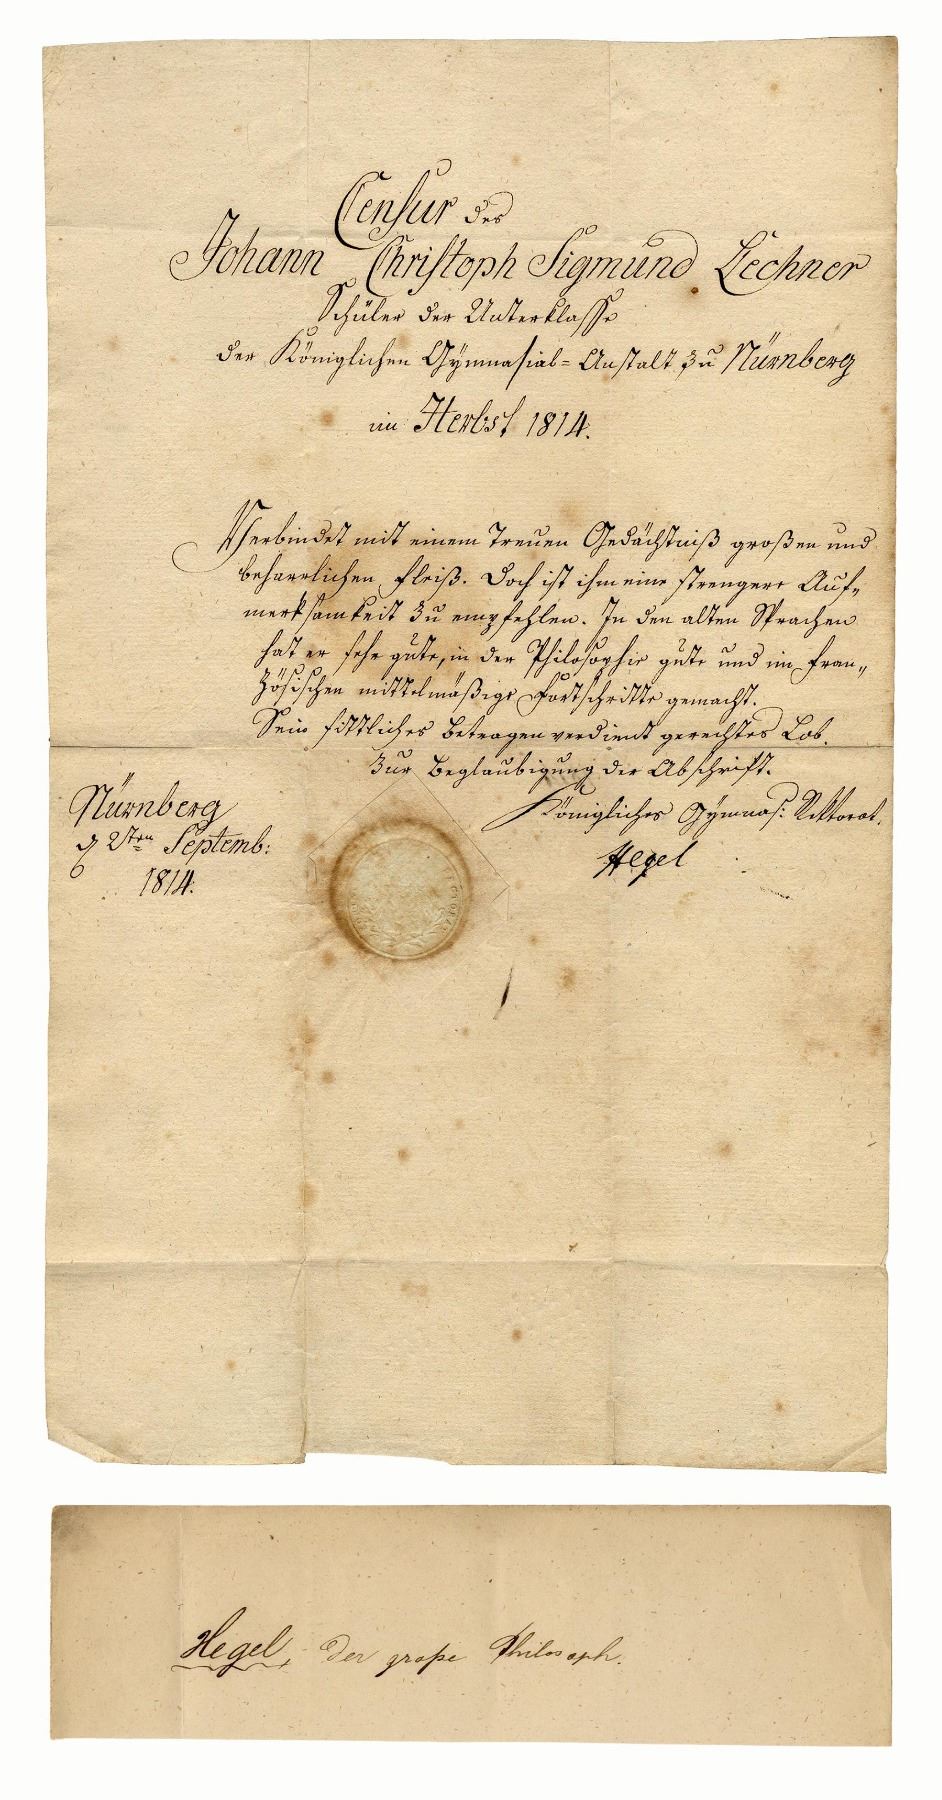 Censur des
Johann Christoph Sigmund Lechner
Schüler der Unterklasse
der Königlichen Gymnasial= Anstalt zu Nürnberg
im Herbst 1814.
Verbindet mit einem treuen Gedächtniß großen und
beharrlichen Fleiß. Doch ist ihm eine strengere Auf„
merksamkeit zu empfehlen. In den alten Sprachen
hat er sehr gute, in der Philosophie gute und im Fran„
zösischen mittelmäßige Fortschritte gemacht.
Sein sittliches Betragen verdient gerechtes Lob.
Zur Beglaubigung der Abschrift.
Nürnberg
d 2ten Septemb:
1814.
Königliches Gymnas: Rektorat.
Hegel
Hegel, der große Philosoph.